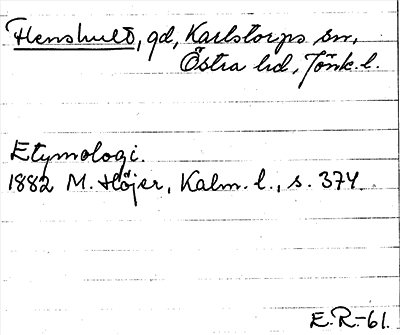 Flenshult, gd, Karlstorps sn,
Östra hd, Jönk. l.
Etymologi.
1882 M. Höjer, Kalm. l., s. 374.
E.R.-61.